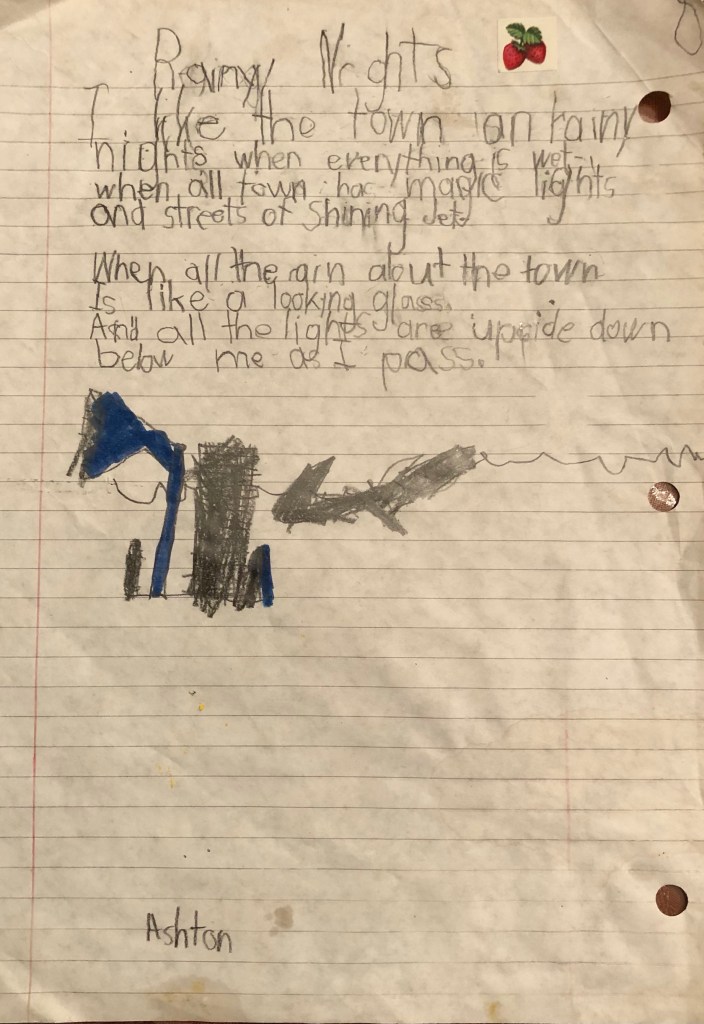 Rainy Nights
I like the town on rainy
nights when everything is wet-
when all town has magic lights
and streets of Shining Jet

When all the arin about the town
Is like a looking glass,
And all the lights are upside down
below me as I pass.
Ashton